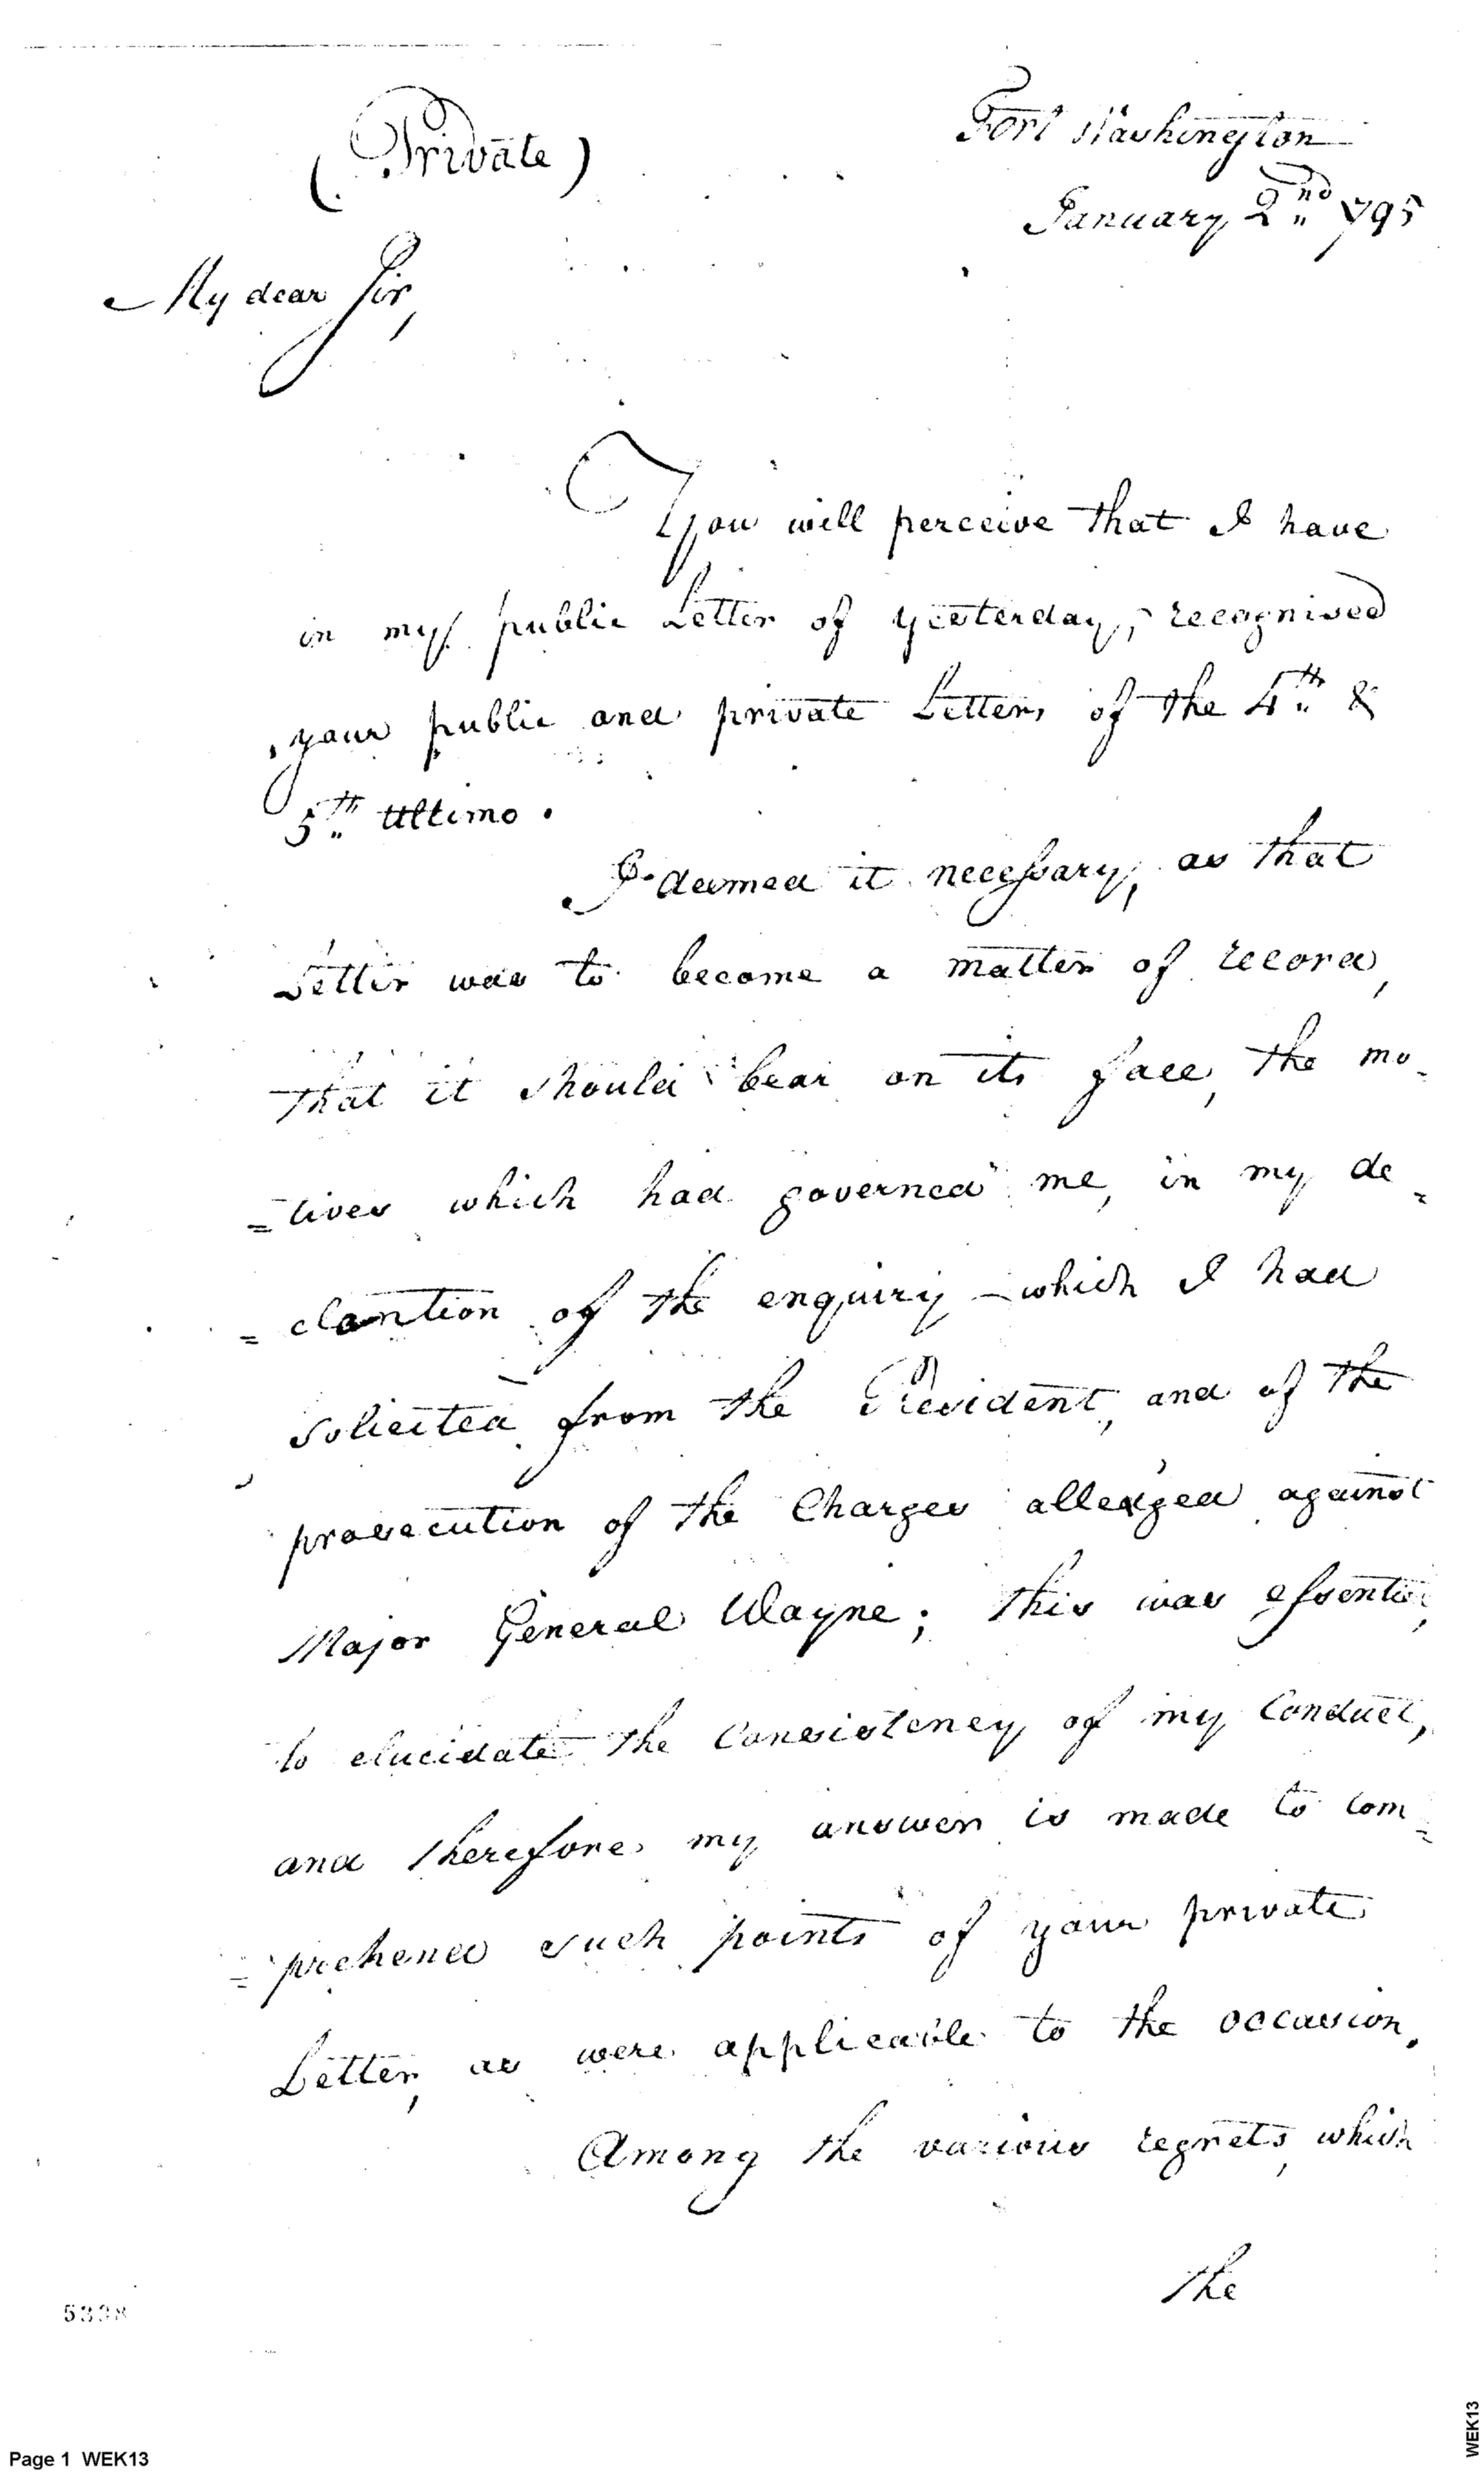 (Private)
Fort Washington
January 2nd 795
My dear Sir,
You will perceive that I have
in my public Letter of yesterday, recognised
your public and private Letters of the 4th &
5th Ultimo.
I deemed it necessary, as that
Letter was to become a matter of record,
that it should bear on its face, the mo-
=tives which had governed me, in my de=
=clantion of the enquiry - which I had
solicited from the President, and of the
prosecution of the Charges alledged against
Major General Wayne; this was essential,
to elucidate the Consistency of my Conduct,
and therefore my answer is made to com=
=prehend such points of your private
Letter, as were applicable to the occasion.
Among the various regrets, which
the
5338
Page 1 WEK13
WEK13